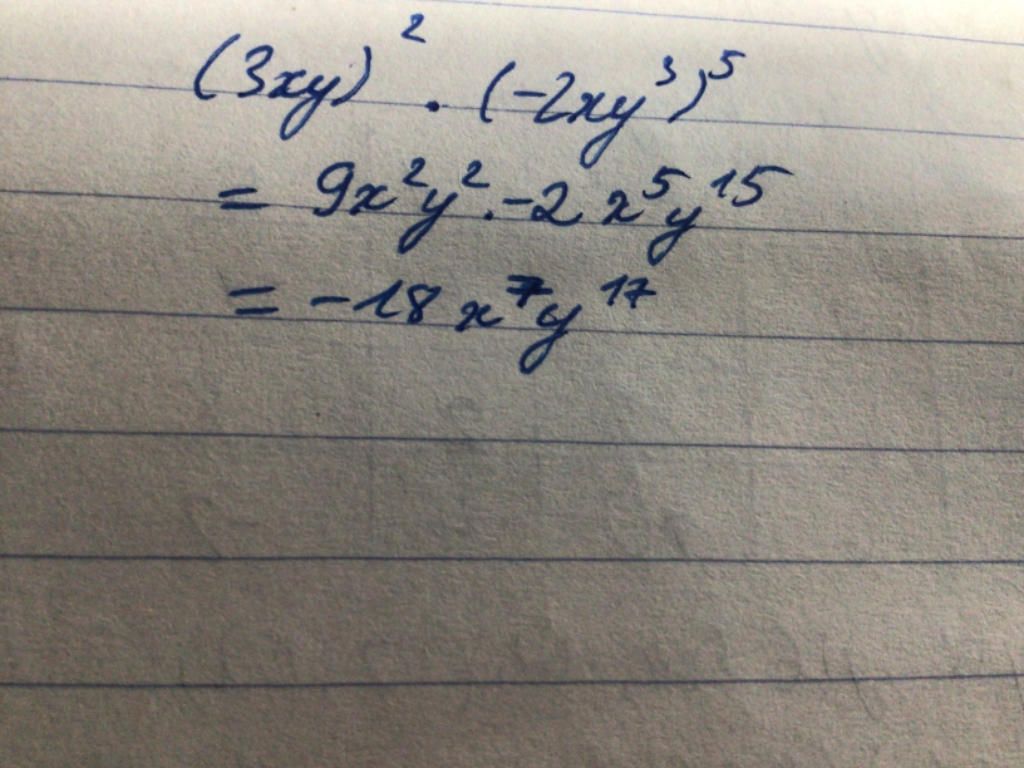 (3xy)² · (-2xy³)⁵
= 9x²y² · -2x⁵y¹⁵
= -18x⁷y¹⁷